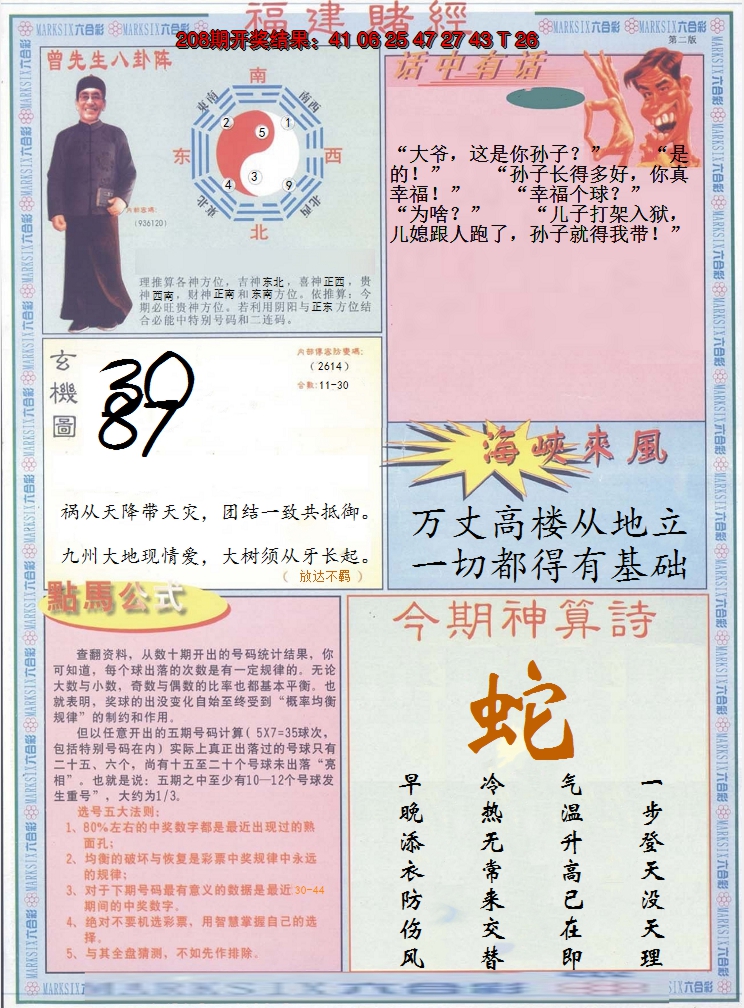 福建賭經
208期开奖结果：41 06 25 47 27 43 T 26
第二版
MARKSIX六合彩
曾先生八卦阵
南
东南
南西
东
西
2
5
1
3
4
9
东北
北西
北
内部密碼:
(936120)
理推算各神方位，吉神东北，喜神正西，贵
神西南，财神正南和东南方位。依推算：今
期必旺贵神方位。若利用阴阳与正东方位结
合必能中特别号码和二连码。
话中有话
“大爷，这是你孙子？” “是
的！” “孙子长得多好，你真
幸福！” “幸福个球？”
“为啥？” “儿子打架入狱，
儿媳跟人跑了，孙子就得我带！”
玄機圖
(2614)
合数:11-30
30
87
祸从天降带天灾，团结一致共抵御。
九州大地现情爱，大树须从牙长起。
（ 放达不羁 ）
海峽來風
万丈高楼从地立
一切都得有基础
點馬公式
查翻资料，从数十期开出的号码统计结果，你
可知道，每个球出落的次数是有一定规律的。无论
大数与小数，奇数与偶数的比率也都基本平衡。也
就表明，奖球的出没变化自始至终受到“概率均衡
规律”的制约和作用。
但以任意开出的五期号码计算( 5X7=35球次，
包括特别号码在内) 实际上真正出落过的号球只有
二十五、六个，尚有十五至二十个号球未出落“亮
相”。也就是说：五期之中至少有10—12个号球发
生重号”，大约为1/3。
选号五大法则：
1、80%左右的中奖数字都是最近出现过的熟
面孔；
2、均衡的破坏与恢复是彩票中奖规律中永远
的规律；
3、对于下期号码最有意义的数据是最近 30-44
期间的中奖数字。
4、绝对不要机选彩票，用智慧掌握自己的选
择。
5、与其全盘猜测，不如先作排除。
今期神算詩
蛇
一步登天没天理
气温升高已在即
冷热无常来交替
早晚添衣防伤风